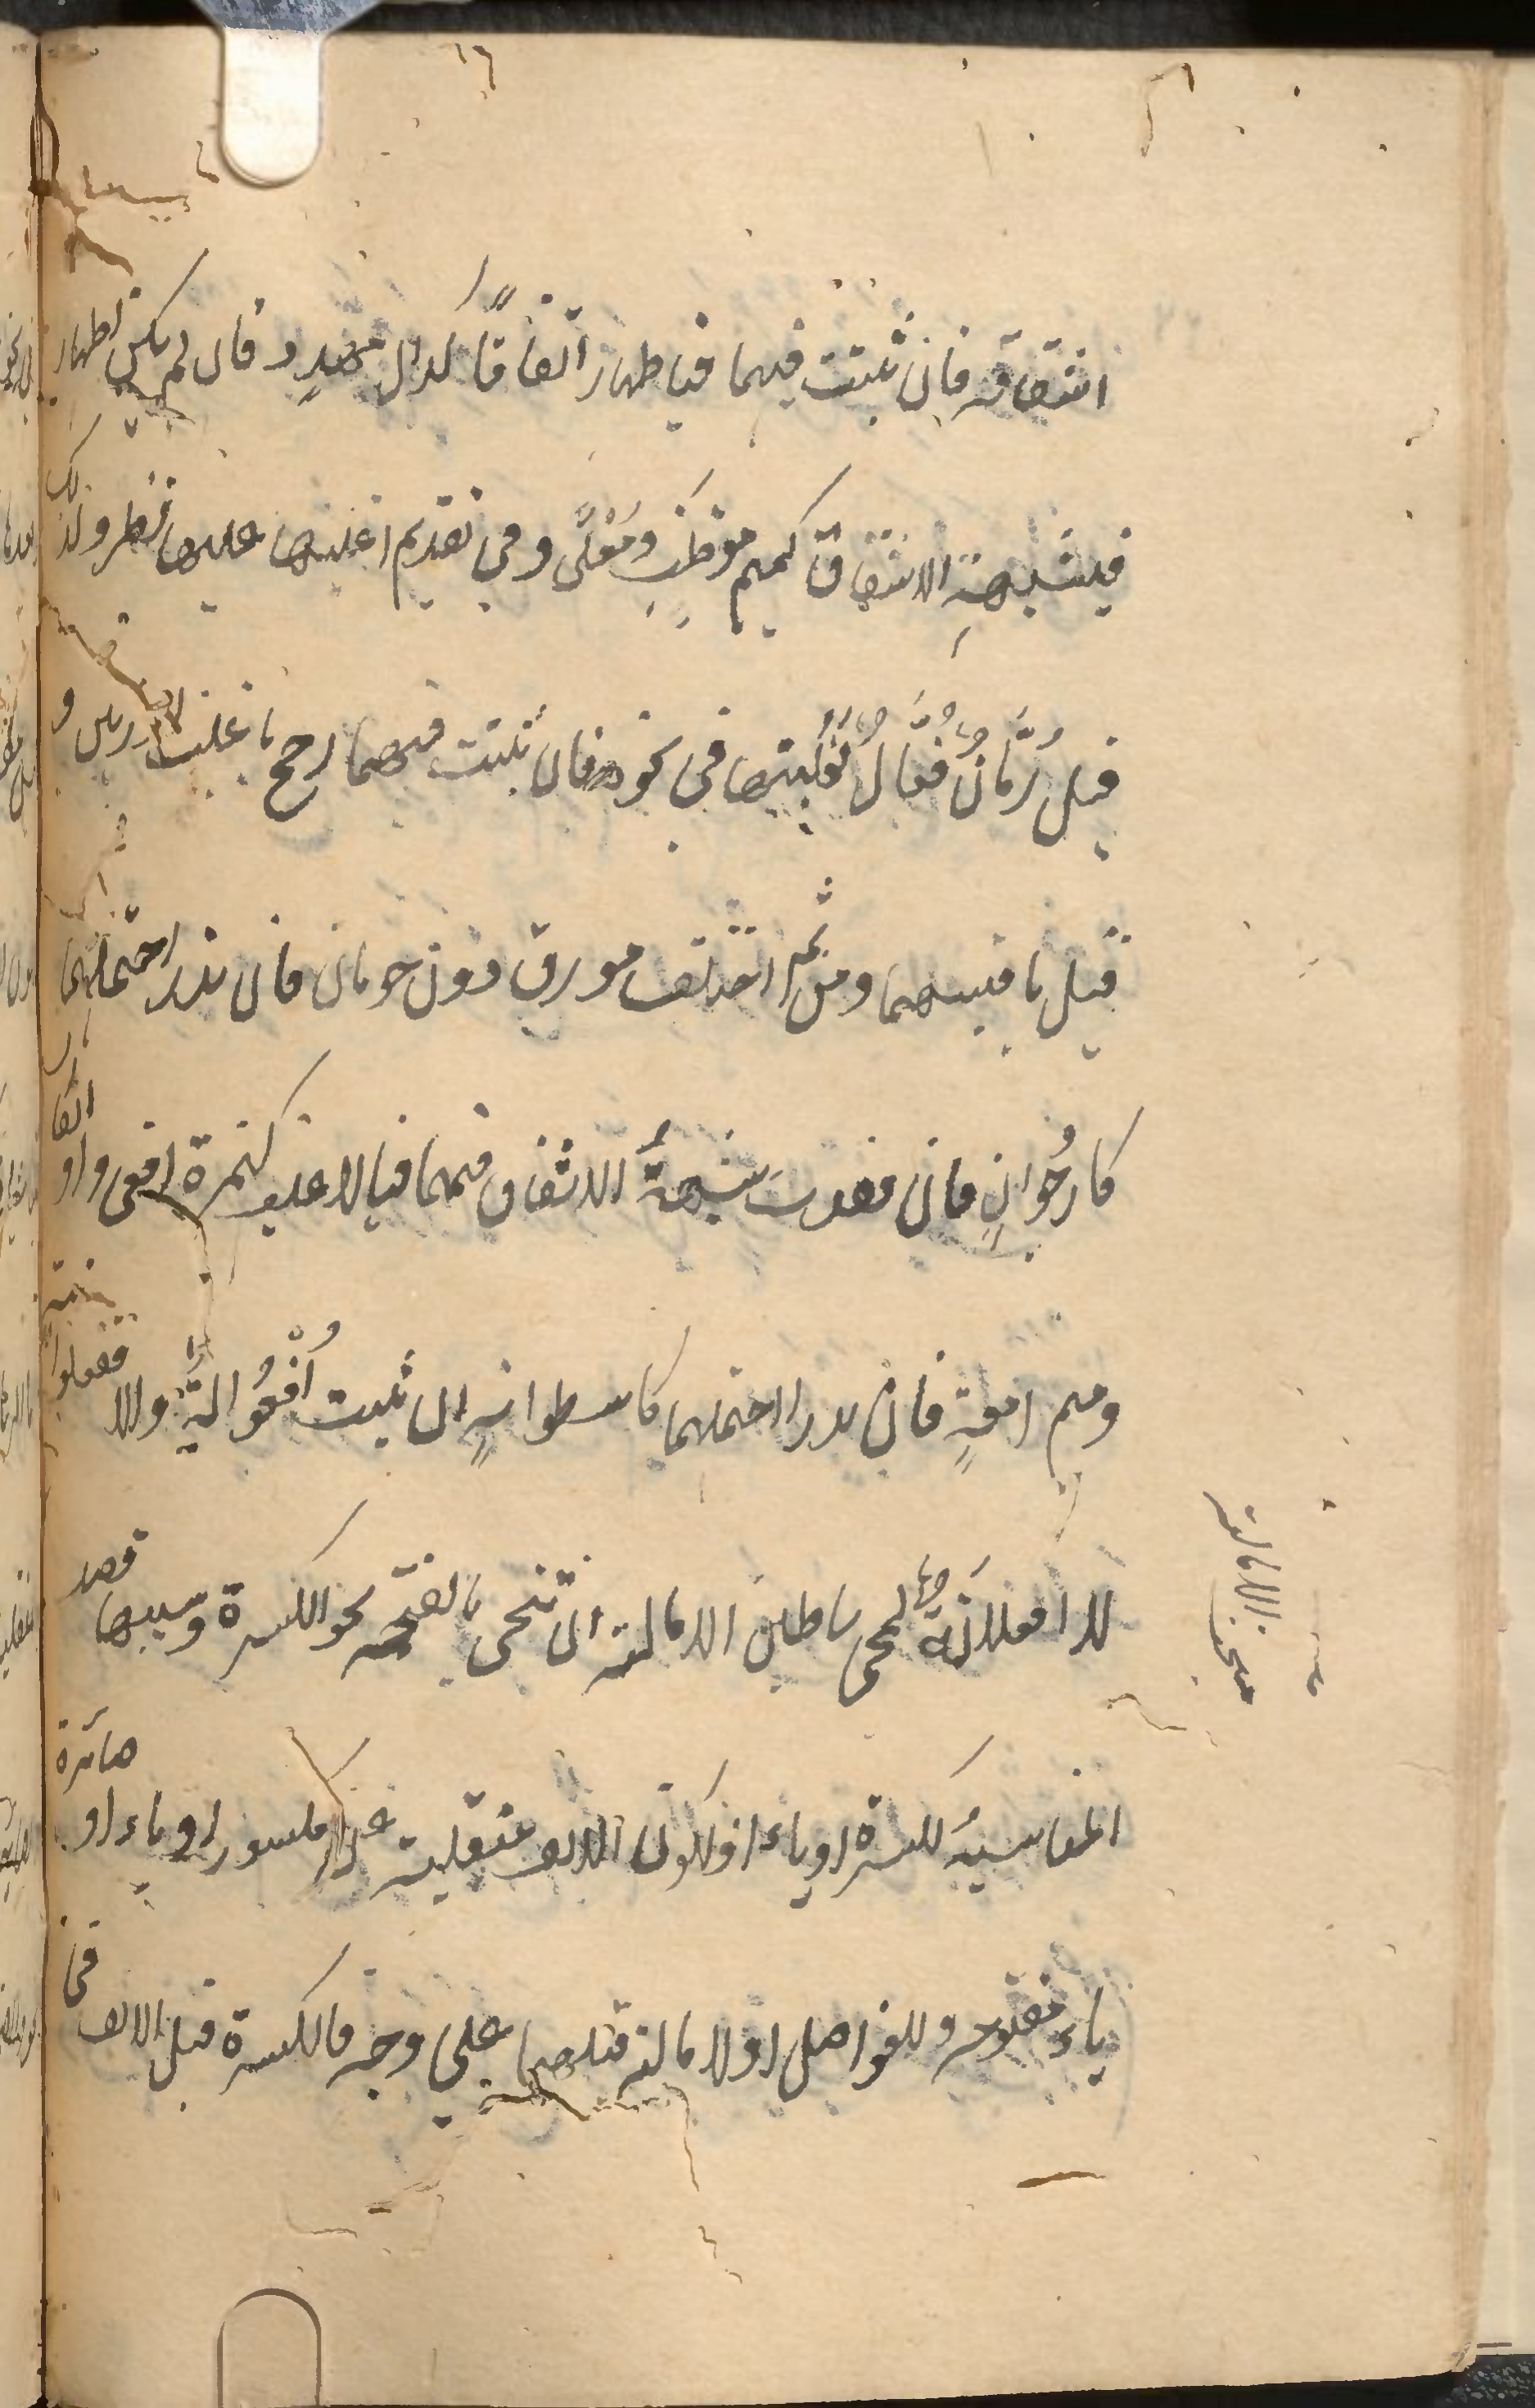 اشتقاق فان ثبتت فيهما فباظهار اتفاقا كدال مهدد فان لم يكن اظهار
فبشبهة الاشتقاق كميم موظب ومعلى وفى تقديم اغلبهما عليها نظر ولذلك
قيل رمان فعال لغلبتها فى نحوه فان ثبتت فيهما رجح باغلب الوزنين و
قيل باقيسهما ومن ثم اختلف مورق دون حومان فان ندر احتملهما
كارجوان فان فقدت شبهة الاشتقاق فيهما فبالاغلب كهمزة افعى واو
ومیم امعة فان ندرا احتملهما كاسطوانة ان ثبت افعوالة والا فعلوانة
لا افعلانة لمجى اساطين الامالة ان تنحى بالفتحة نحو الكسرة وسببها قصد
المناسبة لكسرة او ياء او لكون الالف منقلبة عن مكسور او ياء او صائرة
ياء مفتوحة وللفواصل او لامالة قبلها على وجه فالكسرة قبل الالف فى
مبحث الامالة